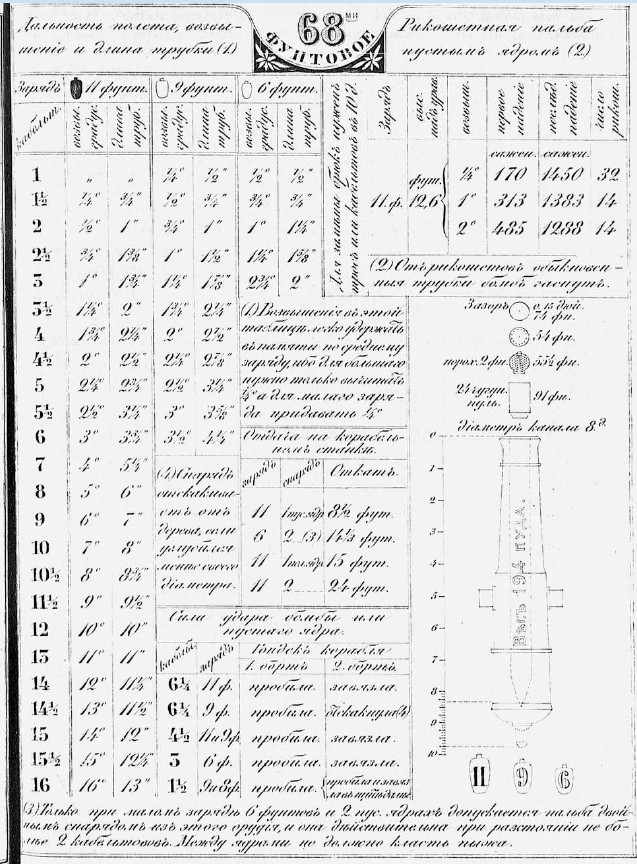 Дальность полета, возвы-
шеніе и длина трубки (1)
68ми
ФУНТОВОЕ
Рикошетная пальба
пустымъ ядромъ (2)
Зарядъ 11 фунт. 9 фунт. 6 фунт.
кабельт. возвы. градус. длина труб. возвы. градус. длина труб. возвы. градус. длина труб.
1 „ „ ¼° ½" ½° ½"
1½ ¼° ¾" ½° ¾" ¾° ¾"
2 ½° 1" ¾° 1" 1° 1¼"
2½ ¾° 1⅜" 1° 1½" 1¼° 1⅝"
3 1° 1¾" 1¼° 1⅞" 2¾° 2"
3½ 1¼° 2" 1¾° 2¼"
4 1¾° 2¼" 2° 2½"
4½ 2° 2½" 2¼° 2⅞"
5 2¼° 2¾" 2½° 3¼"
5½ 2½° 3¼" 3° 3⅜"
6 3° 3¾" 3½° 4¼"
7 4° 5¼"
8 5° 6"
9 6° 7"
10 7° 8"
10½ 8° 8¾"
11½ 9° 9½"
12 10° 10"
13 11° 11"
14 12° 11¼"
14½ 13° 11½"
15 14° 12"
15½ 15° 12¼"
16 16° 13"
Зарядъ возвыш. первое паденіе послѣд. паденіе число рикош.
сажен. сажен.
11 ф. фут. 12,6
¼° 170 1450 32
1° 313 1383 14
2° 485 1288 14
(2) Отъ рикошетовъ обыкновен-
ныя трубки бомбъ гаснутъ.
(1) Возвышенія въ этой
таблицѣ легко удержать
въ памяти по среднему
заряду, ибо для большаго
нужно только вычитать
¼° а для малаго заря-
да придавать ¼°
Отдача на корабель-
номъ станкѣ.
зарядъ снарядъ Откатъ.
11 1 пус. ядр. 8½ фут.
6 2 (3) 14½ фут.
11 1 пол. ядр. 15 фут.
11 2 24 фут.
(4) Снарядъ
отскакива-
етъ отъ
дерева, если
углубился
менѣе своего
діаметра.
Сила удара бомбы или
пустаго ядра.
кабельт. зарядъ Гондекъ корабля
1. бортъ 2. бортъ.
6¼ 11 ф. пробила. завязла.
6¼ 9 ф. пробила. отскакнула (4)
4½ 11 и 9 ф. пробила. завязла.
3 6 ф. пробила. завязла.
1½ 9 и 8 ф. пробила.
Зазоръ 0.15 дюй.
74 фн.
54 фн.
порох. 2 фн. 55½ фн.
24 чугун. пуль. 91 фн.
діаметръ канала 8 д.
0
1
2
3
4
5
6
7
8
9
10
ВѢСЪ 194 ПУДА.
11 9 6
(3) Только при маломъ зарядѣ 6 фунтовъ и 2 пус. ядрахъ допускается пальба двой-
нымъ снарядомъ изъ этого орудія, и она дѣйствительна при разстояніи не бо-
лѣе 2 кабельтововъ. Между ядрами не должно класть пыжа.